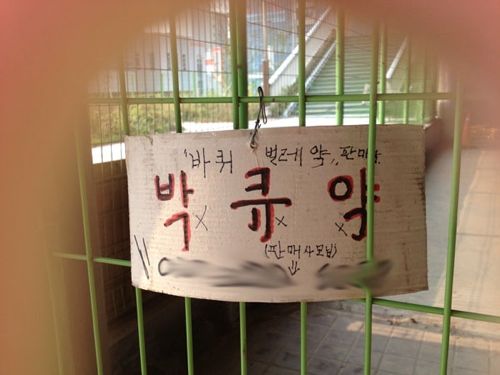 "바퀴 벌레 약" 판매
박 x 큐 x x 약
(판매사모님)